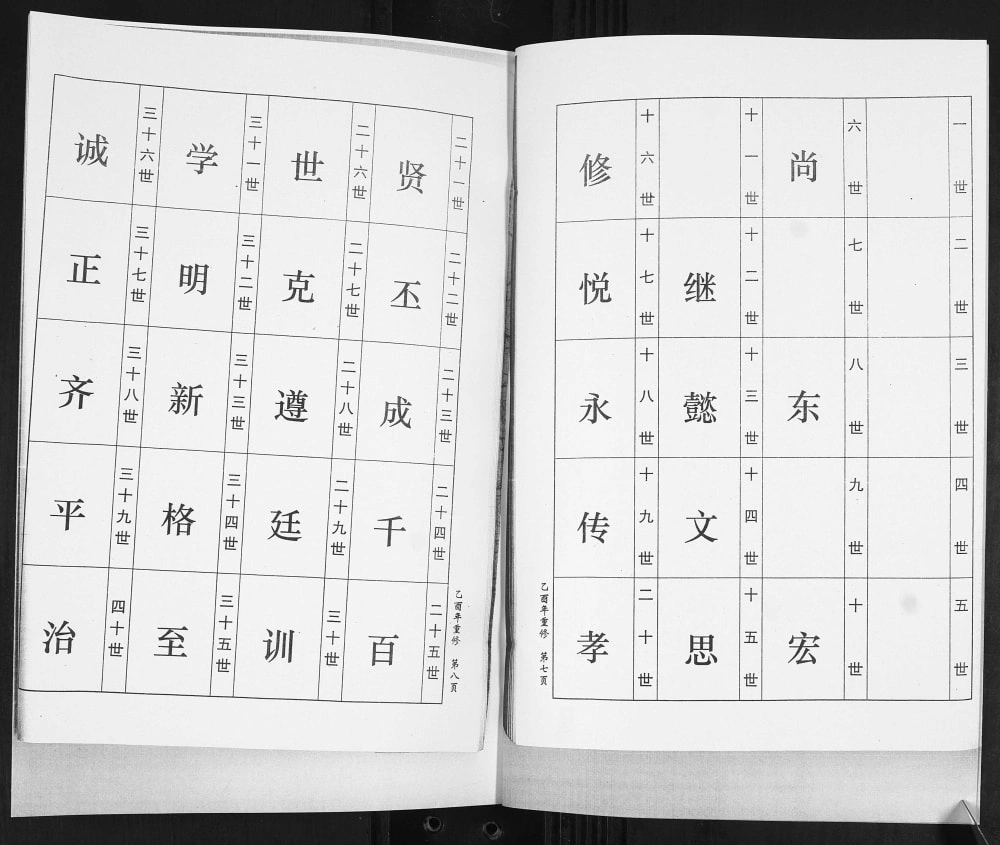 一世
二世
三世
四世
五世
六世 尚
七世
八世 东
九世
十世 宏
十一世
十二世 继
十三世 懿
十四世 文
十五世 思
十六世 修
十七世 悦
十八世 永
十九世 传
二十世 孝
乙酉年重修 第七页
乙酉年重修 第八页
二十一世 贤
二十二世 丕
二十三世 成
二十四世 千
二十五世 百
二十六世 世
二十七世 克
二十八世 遵
二十九世 廷
三十世 训
三十一世 学
三十二世 明
三十三世 新
三十四世 格
三十五世 至
三十六世 诚
三十七世 正
三十八世 齐
三十九世 平
四十世 治